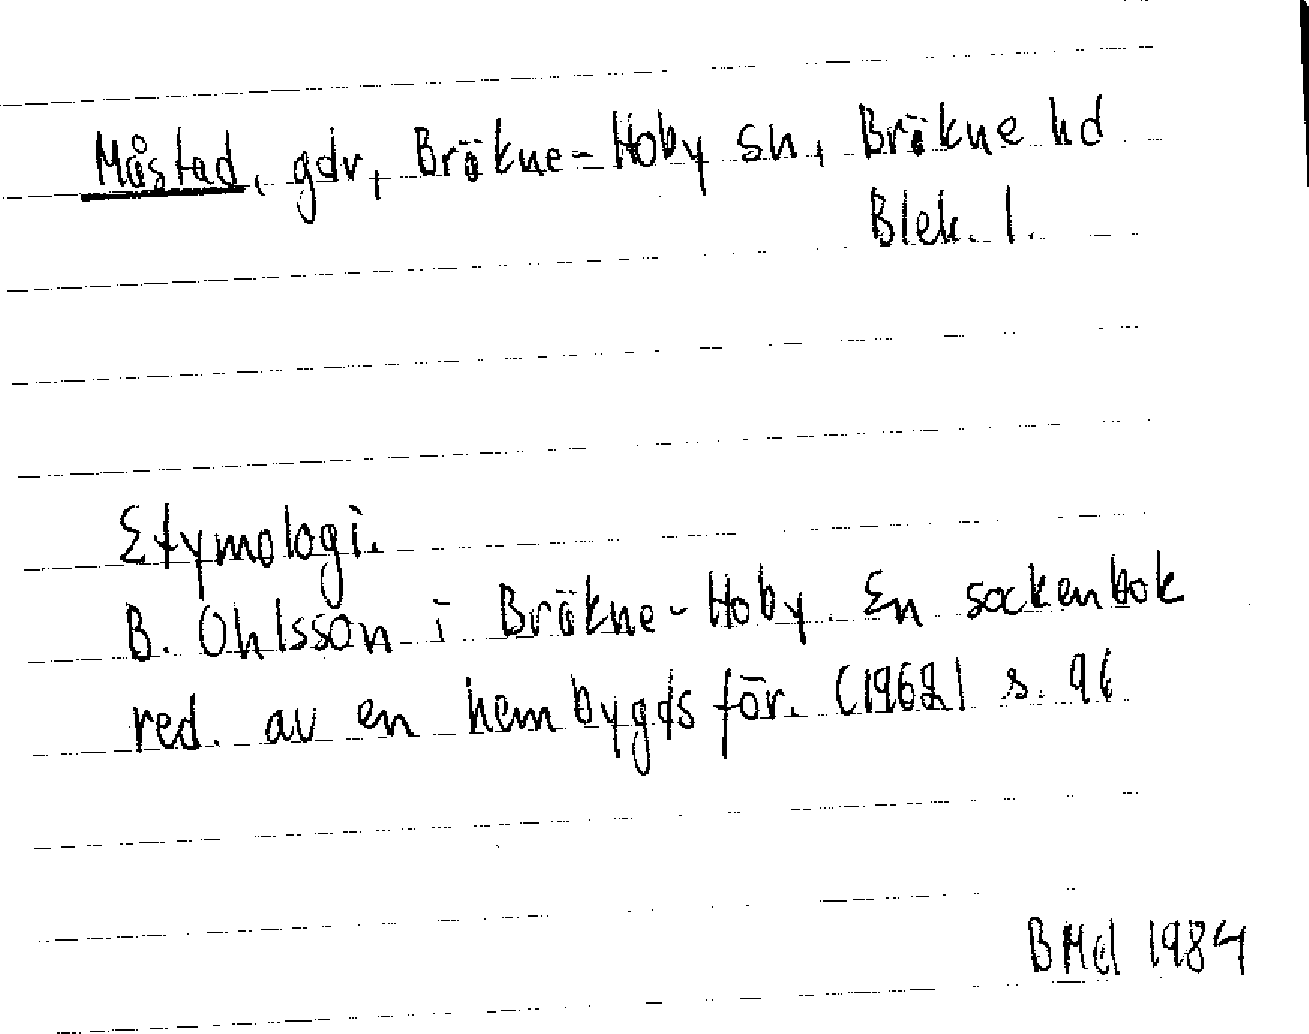 Måstad, gdr, Bräkne-Hoby sn, Bräkne hd
Blek. l.
Etymologi.
B. Ohlsson i Bräkne-Hoby. En sockenbok
red. av en hembygdsför. (1962) s. 96
BMd 1984